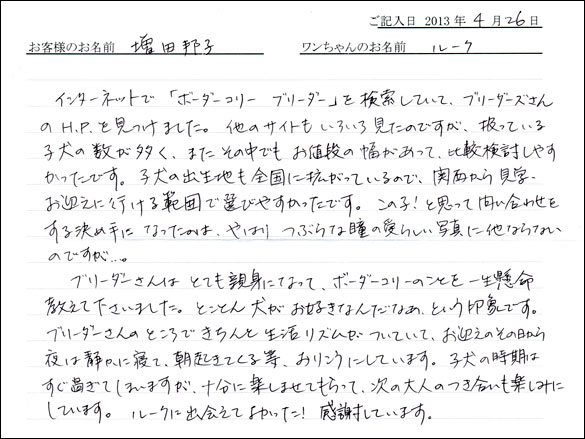 ご記入日 2013 年 4 月 26 日
お客様のお名前 増田邦子 ワンちゃんのお名前 ルーク
インターネットで「ボーダーコリー ブリーダー」を検索していて、ブリーダーズさん
の H.P. を見つけました。他のサイトもいろいろ見たのですが、扱っている
子犬の数が多く、またその中でも お値段の幅があって、比較検討しやす
かったです。子犬の出生地も全国に拡がっているので、関西から見学、
お迎えに行ける範囲で選びやすかったです。この子!と思って問い合わせを
する決め手になったのは、やはり つぶらな瞳の愛らしい写真に他ならない
のですが…。
ブリーダーさんは とても親身になって、ボーダーコリーのことを一生懸命
教えて下さいました。とことん犬がお好きなんだなぁ、という印象です。
ブリーダーさんのところできちんと生活リズムがついていて、お迎えのその日から
夜は静かに寝て、朝起きてくる等、おりこうにしています。子犬の時期は
すぐ過ぎてしまいますが、十分に楽しませてもらって、次の大人のつき合いも楽しみに
しています。ルークに出会えてよかった!感謝しています。